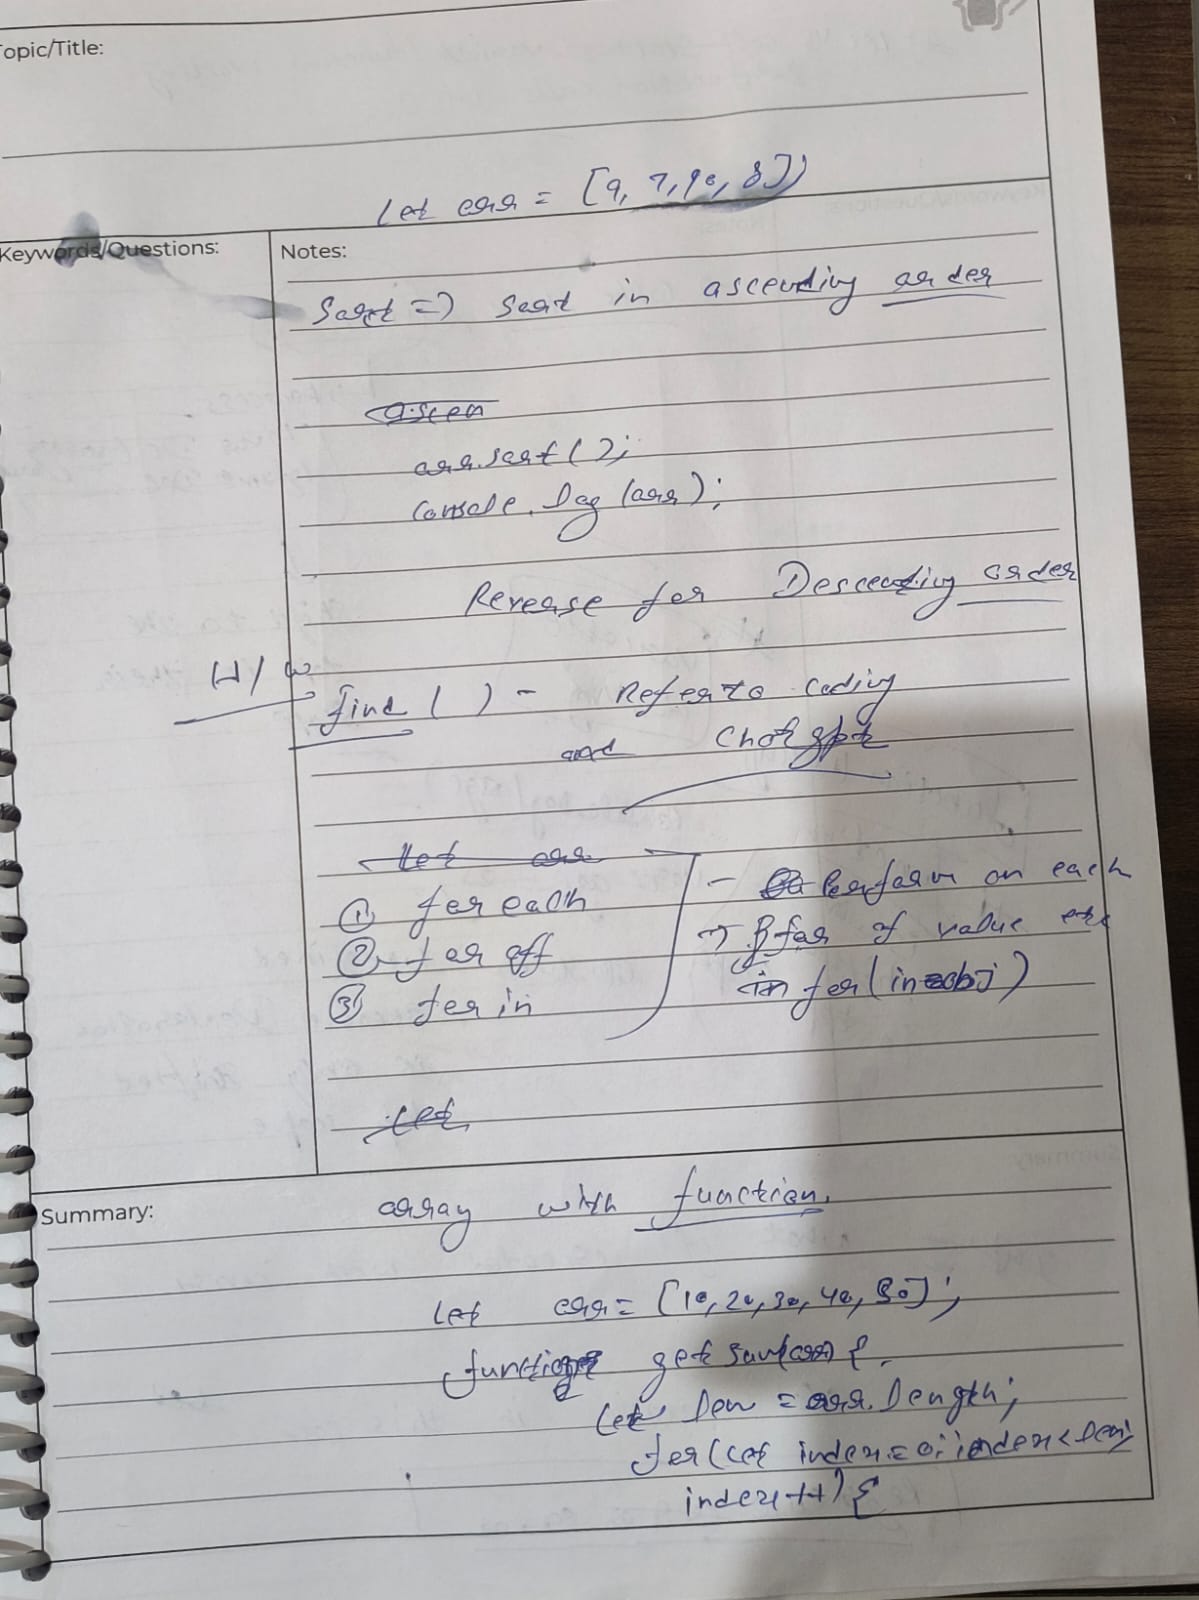 Topic/Title:
let arr = [9, 7, 10, 8])
Keywords/Questions:
Notes:
Sort => Sort in ascending order
ascen
arr.sort();
Console.log(arr);
Reverse for Descending order
H/W
find ( ) - Refer to coding
and Chatgpt
let arr
① for each
② for off
③ for in
- Perform on each
→ for of value etc
in for (in obj)
let
Summary:
array with function.
let arr = [10, 20, 30, 40, 50];
function getSum(arr) {
let len = arr.length;
for (let index = 0; index < len;
index++) {